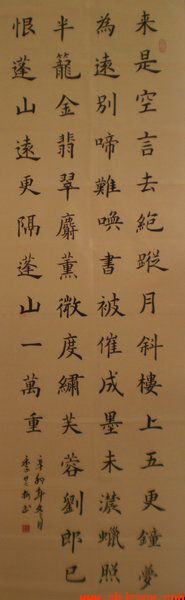 来是空言去絕蹤月斜樓上五更鐘夢
為遠別啼難喚書被催成墨未濃蠟照
半籠金翡翠麝薰微度繡芙蓉劉郎已
恨蓬山遠更隔蓬山一萬重
辛卯年